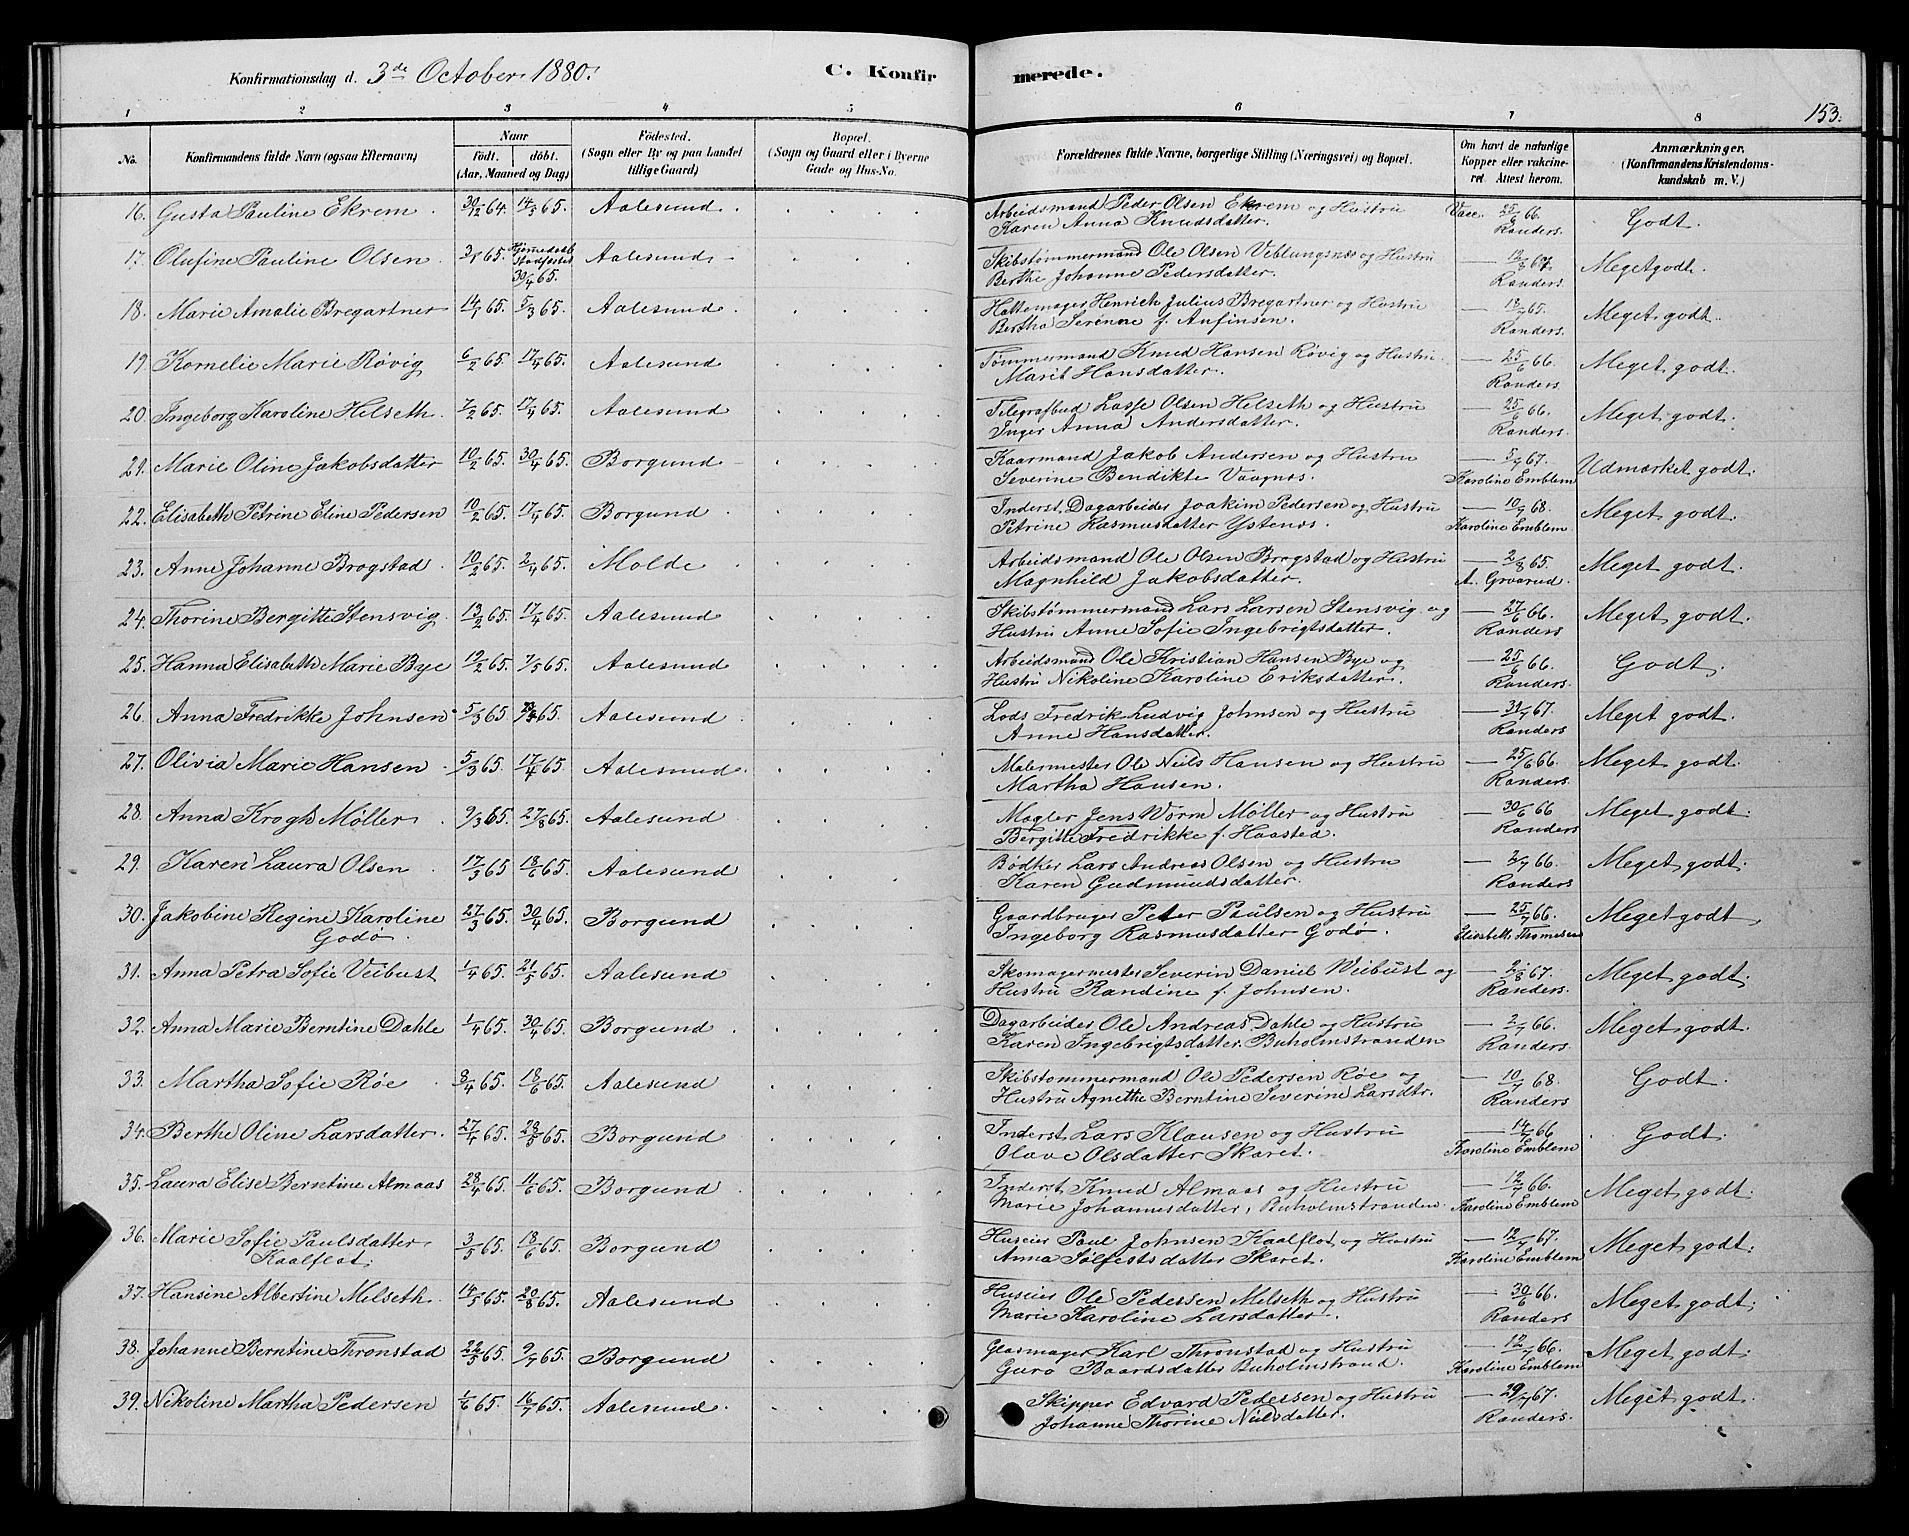 Konfirmationsdag d. 3de October 1880. C. Konfirmerede. 153.
1 2 3 4 5 6 7 8
No. Konfirmandens fulde Navn (ogsaa Efternavn) Naar födt. döbt. (Aar, Maaned og Dag) Födested. (Sogn eller By og paa Landet tillige Gaard) Bopæl. (Sogn og Gaard eller i Byerne Gade og Hus-No. Forældrenes fulde Navne, borgerlige Stilling (Næringsvei) og Bopæl. Om havt de naturlige Kopper eller vakcineret. Attest herom. Anmærkninger. (Konfirmandens Kristendomskundskab m. V.)
16. Gusta Pauline Ekrem 30/12 64. 14/5 65. Aalesund Arbeidsmand Peder Olsen Ekrem og Hustru Vacc. 25/6 66. Godt.
Karen Anna Knudsdatter. Randers.
17. Olufine Pauline Olsen 65. Hjemmedøbt Stadfæstet 30/4 65. Aalesund Skibstømmermand Ole Olsen Veblungsnæs og Hustru — 12/8 67. Meget godt.
Berthe Johanne Pedersdatter. Randers
18. Marie Amalie Bregartner 14/1 65. 5/3 65. Aalesund Hattemager Henrich Julius Bregartner og Hustru — 65. Meget godt.
Bertha Serene f. Anfinsen. Randers.
19. Kornelie Marie Røvig 6/2 65. 17/4 65. Aalesund Tømmermand Knud Hansen Røvig og Hustru — 25/6 66. Meget godt.
Marit Hansdatter. Randers.
20. Ingeborg Karoline Helseth. 7/2 65. 17/4 65. Aalesund Telegrafbud Lasse Olsen Helseth og Hustru — 25/6 66. Meget godt.
Inger Anna Andersdatter. Randers.
21. Marie Oline Jakobsdatter 10/2 65. 30/4 65. Borgund Kaarmand Jakob Andersen og Hustru — 5/7 67. Udmærket godt.
Severine Bendikte Vaagnæs. Karoline Emblem
22. Elisabeth Petrine Eline Pedersen 10/2 65. 17/4 65. Borgund Inderst, Dagarbeider Joakim Pedersen og Hustru — 10/7 68. Meget godt.
Petrine Rasmusdatter Ystenæs. Karoline Emblem.
23. Anne Johanne Brogstad. 10/2 65. 2/4 65. Molde Arbeidsmand Ole Olsen Brogstad og Hustru — 2/8 65. Meget godt.
Magnhild Jakobsdatter. A. Grvarud.
24. Thorine Bergitte Stensvig. 13/2 65. 17/4 65. Aalesund Skibstømmermand Lars Larsen Stensvig og — 27/6 66. Meget godt.
Hustru Anne Sofie Ingebrigtsdatter. Randers
25. Hanna Elisabeth Marie Bye 19/2 65. 7/5 65. Aalesund Arbeidsmand Ole Kristian Hansen Bye og — 25/6 66. Godt.
Hustru Nikoline Karoline Eriksdatter. Randers.
26. Anna Fredrikke Johnsen 5/3 65. 65. Aalesund Lods Fredrik Ludvig Johnsen og Hustru — 67. Meget godt.
Anne Hansdatter. Randers
27. Olivia Marie Hansen 5/3 65. 17/4 65. Aalesund. Malermester Ole Neils Hansen og Hustru — 25/6 66. Meget godt.
Martha Hansen. Randers.
28. Anna Krogh Møller. 9/3 65. 27/8 65. Aalesund Mægler Jens Worm Møller og Hustru — 30/6 66 Meget godt.
Bergitte Fredrikke f. Haasted. Randers
29. Karen Laura Olsen 17/3 65 18/6 65. Aalesund Bødker Lars Andreas Olsen og Hustru — 2/7 66. Meget godt.
Karen Gudmundsdatter. Randers
30. Jakobine Regine Karoline 27/3 65. 30/4 65. Borgund Gaardbruger Peter Paulsen og Hustru — 25/7 66. Meget godt.
Godø. Ingeborg Rasmusdatter Godø. Elisabeth Thomesen
31. Anna Petra Sofie Veibust 1/4 65. 21/5 65. Aalesund Skomagermester Severin Daniel Weibust og — 2/8 67. Meget godt.
Hustru Randine f. Johnsen. Randers.
32. Anna Marie Berntine Dahle 1/4 65. 30/4 65. Borgund Dagarbeider Ole Andreas Dahle og Hustru — 2/7 66. Meget godt.
Karen Ingebrigtsdatter. Buholmstranden Randers.
33. Martha Sofie Røe 8/4 65. 18/6 65. Aalesund Skibstømmermand Ole Pedersen Røe og — 10/7 68. Godt.
Hustru Agnethe Berntine Severine Larsdtr. Randers
34. Berthe Oline Larsdatter. 27/4 65. 28/5 65. Borgund Inderst Lars Klausen og Hustru — 14/7 66 Godt.
Olave Olsdatter Skaret. Karoline Emblem
35. Laura Elise Berntine Almaas 28/4 65. 11/6 65. Borgund Inderst Knud Almaas og Hustru — 12/7 66. Meget godt.
Marie Johannesdatter, Buholmstranden. Karoline Emblem
36. Marie Sofie Paulsdatter 3/5 65. 18/6 65. Borgund Huseier Paul Johnsen Kaalflot og Hustru — 12/7 67. Meget godt.
Kaalflot. Anna Sølfestsdatter Skaret. Karoline Emblem
37. Hansine Albertine Melseth. 14/5 65. 20/8 65. Aalesund Huseier Ole Pedersen Melseth og Hustru — 30/6 66. Meget godt.
Marie Karoline Larsdatter. Randers
38. Johanne Berntine Thronstad 22/5 65. 9/7 65. Borgund Glasmager Karl Thronstad og Hustru — 12/7 66. Meget godt.
Guro Baardsdatter Buholmstrand. Karoline Emblem
39. Nikoline Martha Pedersen 1/6 65. 16/7 65. Aalesund. Skipper Edvard Pedersen og Hustru — 29/7 67. Meget godt.
Johanne Thorine Nielsdatter. Randers.